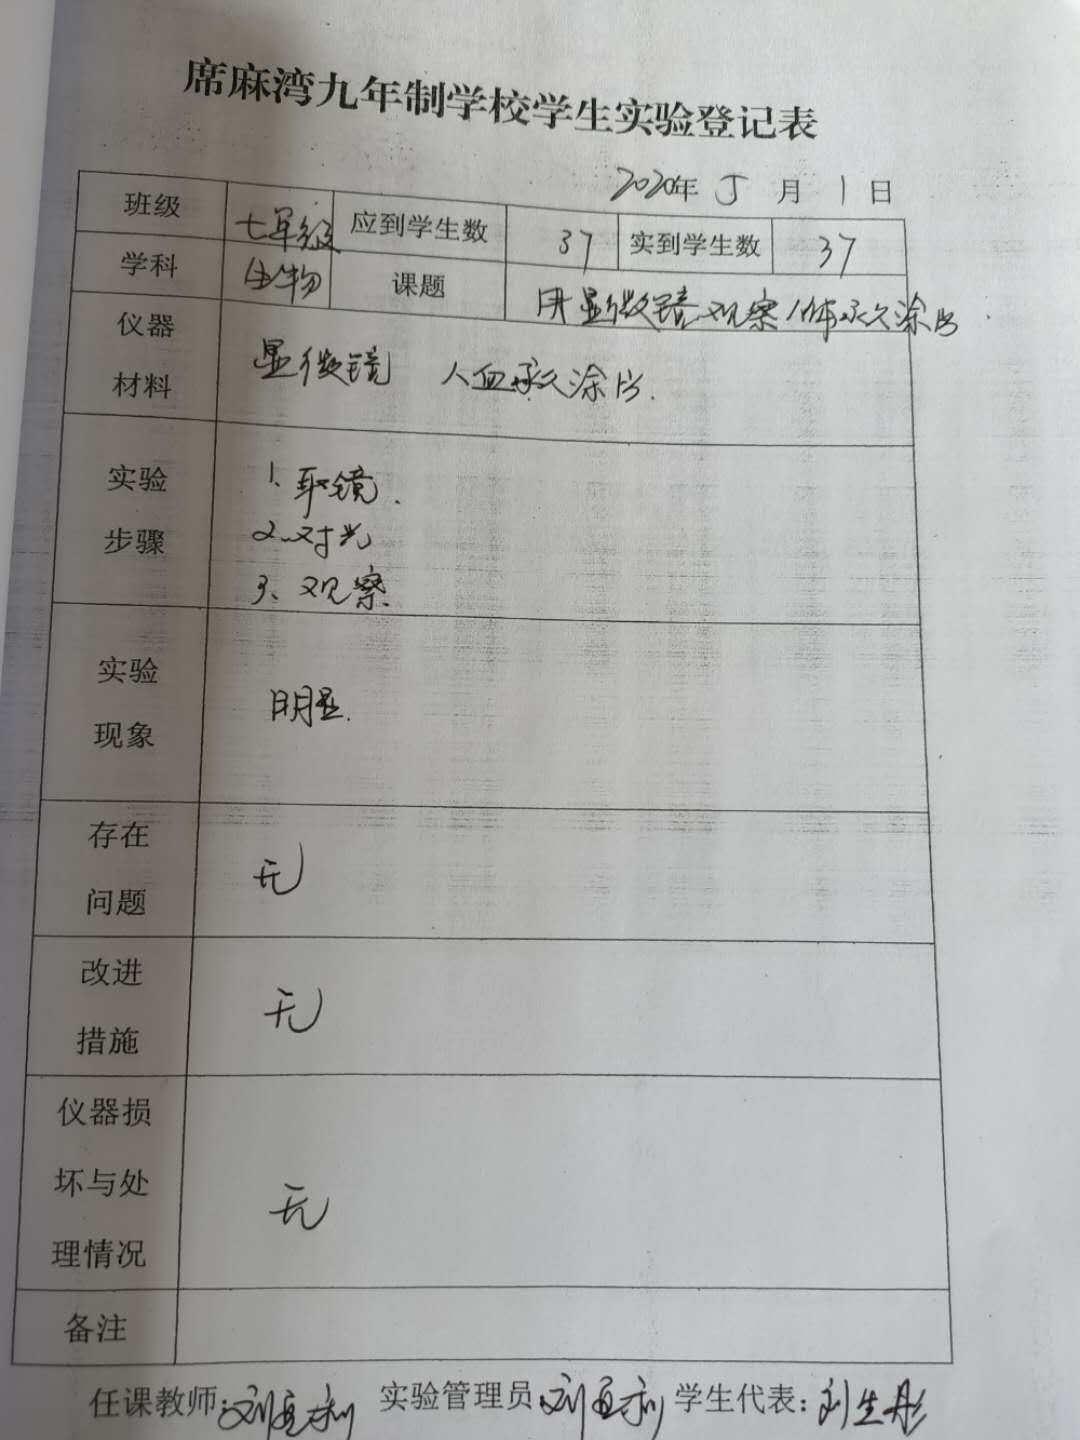 席麻湾九年制学校学生实验登记表
2020年 5 月 1 日
班级 七年级 应到学生数 37 实到学生数 37
学科 生物 课题 用显微镜观察人体永久涂片
仪器
材料
显微镜 人血永久涂片.
实验
步骤
1. 取镜.
2. 对光
3、观察.
实验
现象
明显.
存在
问题
无
改进
措施
无
仪器损
坏与处
理情况
无
备注
任课教师: 刘 实验管理员: 刘 学生代表: 刘生彤